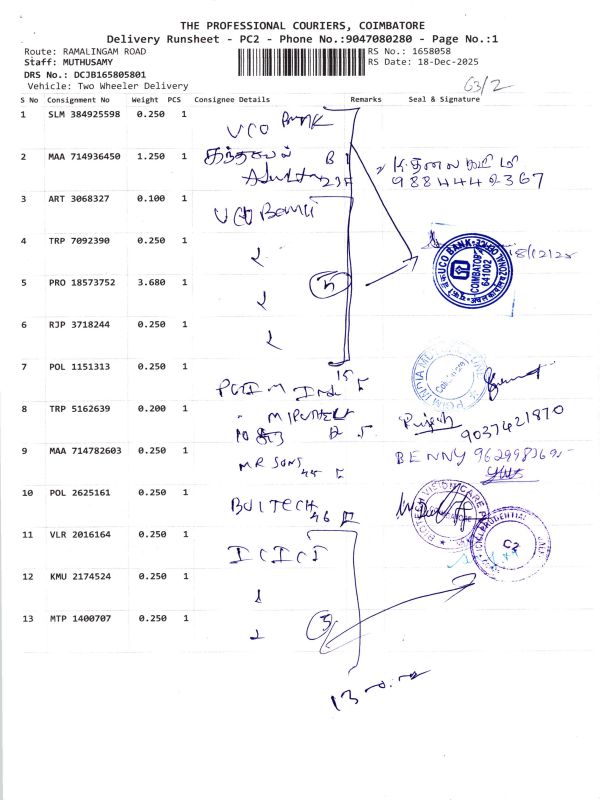 THE PROFESSIONAL COURIERS, COIMBATORE
Delivery Runsheet - PC2 - Phone No.:9047080280 - Page No.:1
Route: RAMALINGAM ROAD RS No.: 1658058
Staff: MUTHUSAMY RS Date: 18-Dec-2025
DRS No.: DCJB165805801
Vehicle: Two Wheeler Delivery 63/2
S No Consignment No Weight PCS Consignee Details Remarks Seal & Signature
1 SLM 384925598 0.250 1 UCO Bank
2 MAA 714936450 1.250 1
9884442367
3 ART 3068327 0.100 1 UCO Bank
4 TRP 7092390 0.250 1 18/12/25
UCO BANK COIMBATORE 641002
5 PRO 18573752 3.680 1
6 RJP 3718244 0.250 1
7 POL 1151313 0.250 1
8 TRP 5162639 0.200 1
9037421870
9 MAA 714782603 0.250 1 MR SONS BENNY
10 POL 2625161 0.250 1 BOITECH 46
BIOTECH VISION CARE
11 VLR 2016164 0.250 1 ICICI
ICICI PRUDENTIAL
12 KMU 2174524 0.250 1
13 MTP 1400707 0.250 1 3
13